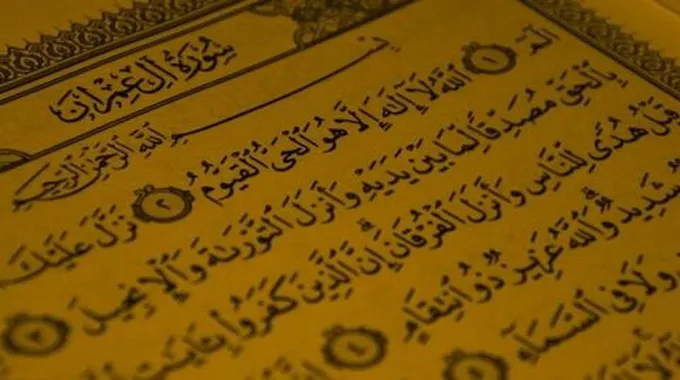 سُورَةُ آلِ عِمْرَانَ
بِسْمِ ٱللَّهِ ٱلرَّحْمَٰنِ ٱلرَّحِيمِ
الٓمٓ ١ ٱللَّهُ لَآ إِلَٰهَ إِلَّا هُوَ ٱلْحَىُّ ٱلْقَيُّومُ ٢ نَزَّلَ عَلَيْكَ
بِٱلْحَقِّ مُصَدِّقًا لِّمَا بَيْنَ يَدَيْهِ وَأَنزَلَ ٱلتَّوْرَىٰةَ وَٱلْإِنجِيلَ ٣
قَبْلُ هُدًى لِّلنَّاسِ وَأَنزَلَ ٱلْفُرْقَانَ إِنَّ ٱلَّذِينَ كَفَرُوا۟ بِـَٔايَٰتِ
شَدِيدٌ وَٱللَّهُ عَزِيزٌ ذُو ٱنتِقَامٍ ٤
وَلَا فِى ٱلسَّمَآءِ ٥